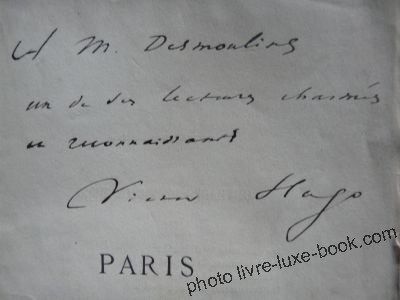 A M. Desmoulins
un de ses lecteurs charmés
et reconnaissants
Victor Hugo
PARIS
photo livre-luxe-book.com